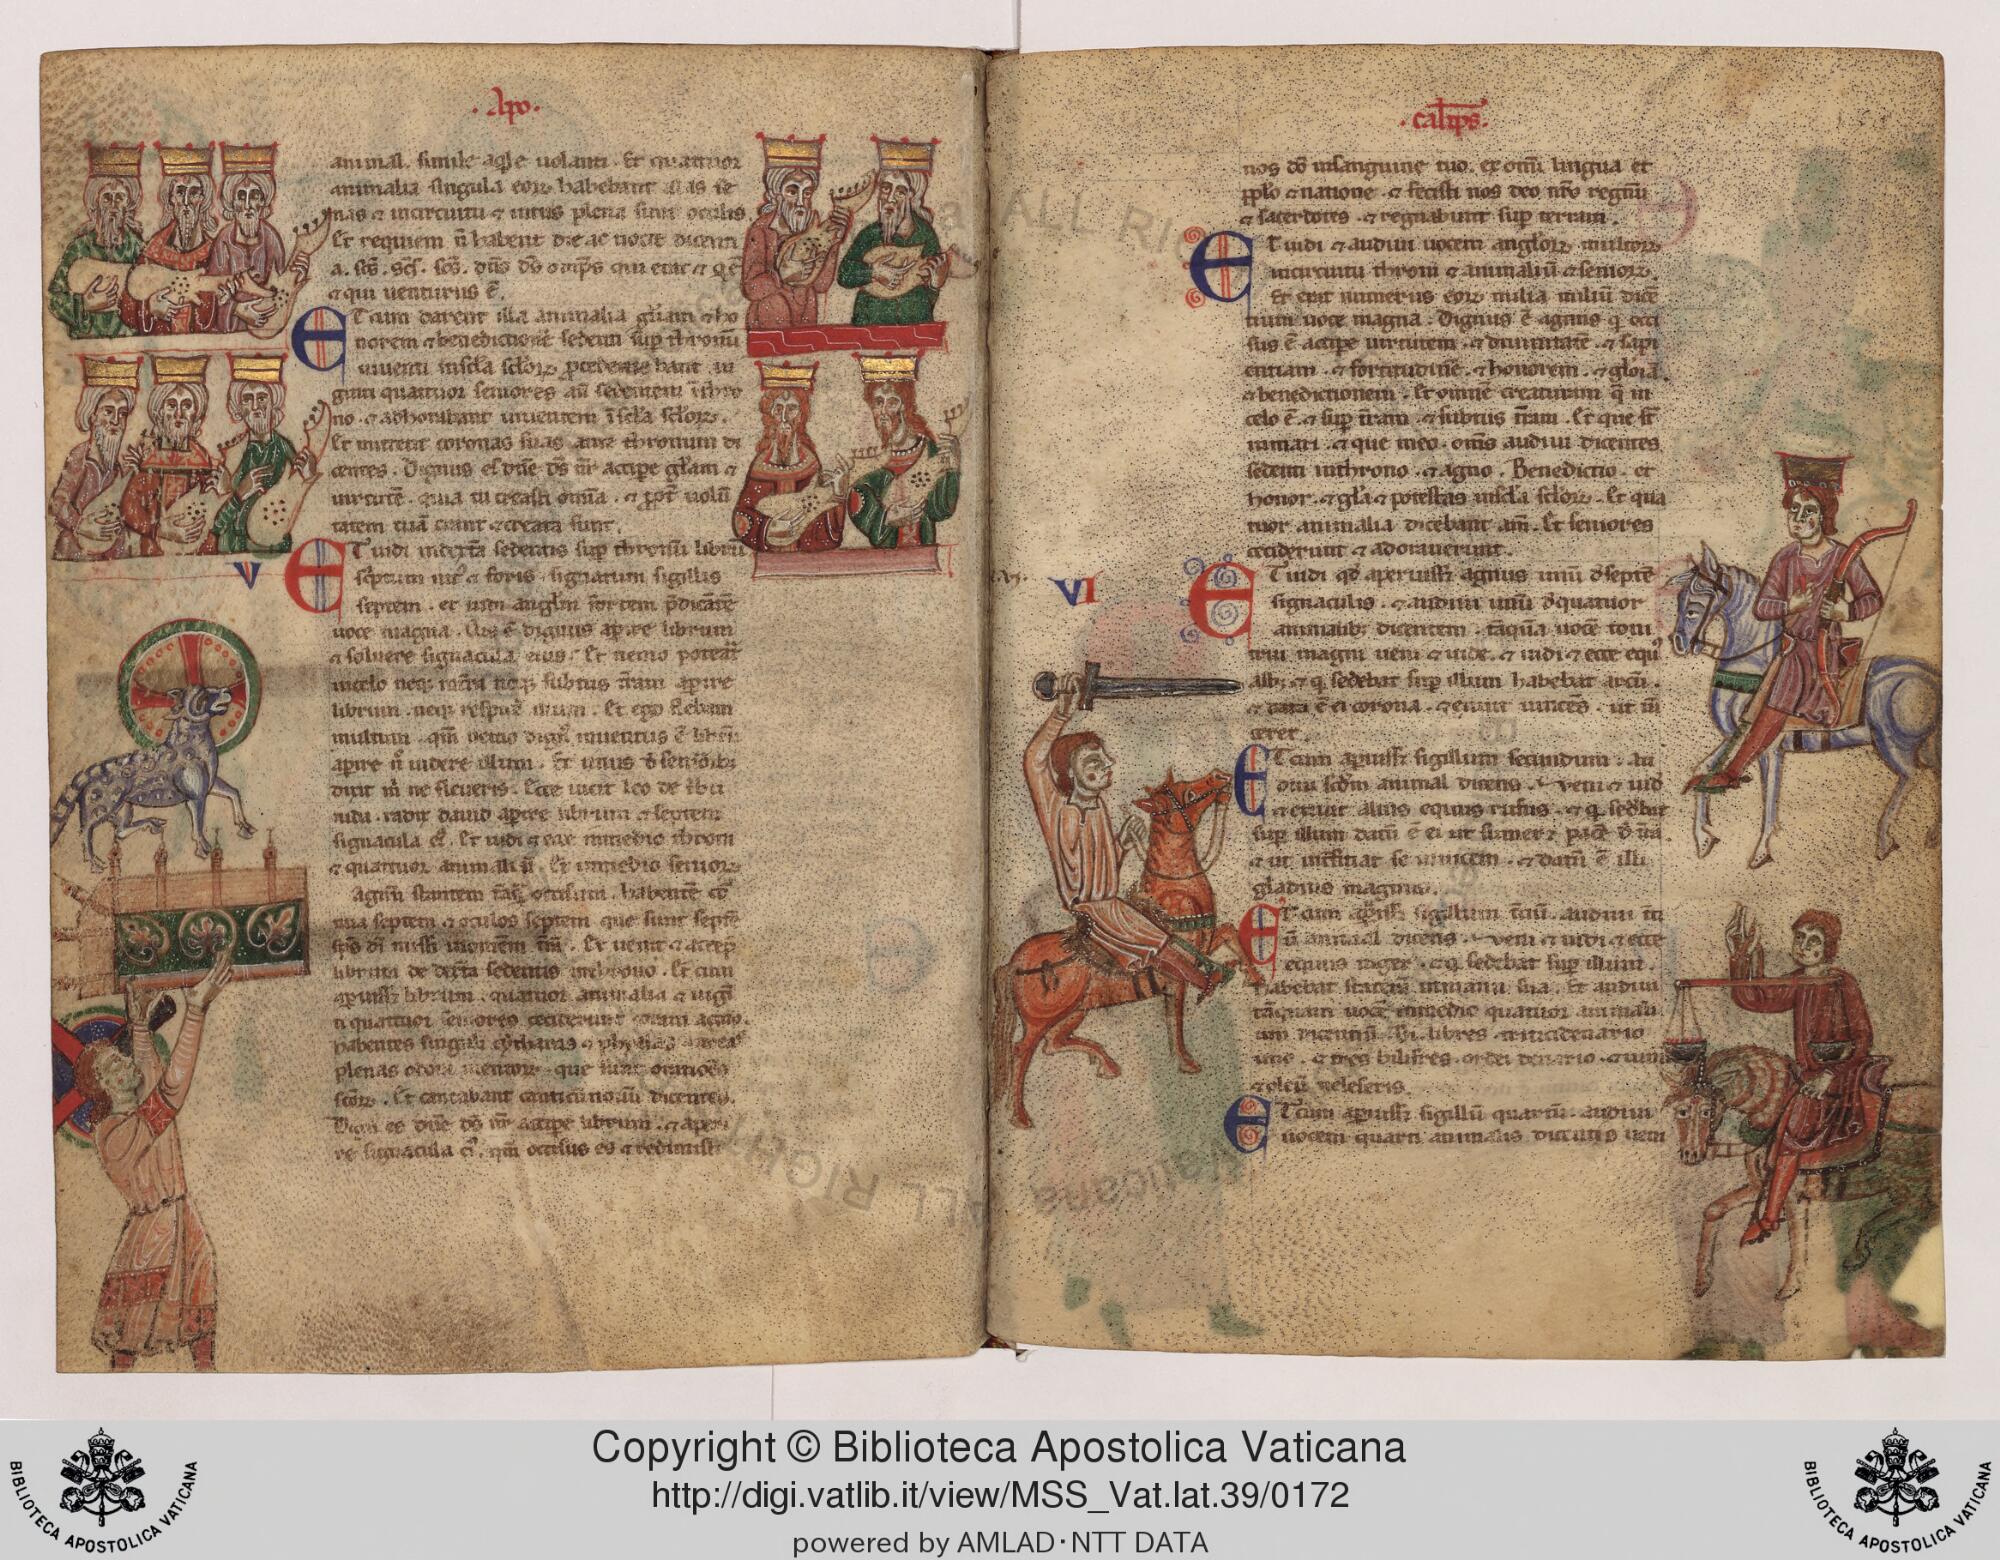 · Apo ·
animal simile aqle uolanti. Et quattuor
animalia singula eorum habebant alas se
nas et incircuitu et intus plena sunt oculis.
Et requiem non habent die ac nocte dicenti
a. scs. scs. scs. dns ds omps qui erat et q e
et qui venturus e.
Et cum darent illa animalia glam et ho
norem et benedictione sedenti sup thronu
viventi in scla sclorum
ginti quattuor seniores an sedentem i thro
no et adhorabant viventem i scla sclorum.
Et mittent coronas suas ante thronum di
centes. Dignus es dne ds nr accipe glam et
virtute. quia tu creasti omia. et ppt volu
tatem tua erant et creata sunt.
V
Et uidi in dextra sedentis sup thronu libru
scptum int et foris signatum sigillis
septem. et uidi anglm fortem pdicate
uoce magna. Qis e dignus apire librum
et soluere signacula eius. Et nemo poterat
incelo neq in tra neq subtus tram apire
librum. neq respice illum. Et ego flebam
multum. qm nemo dign inuentus e libru
apire n uidere illum. Et unus d seniorib
dixit m ne fleueris. Ecce uicit leo de tribu
iuda. radix dauid apire librum et septem
signacula ei. Et uidi et ecce inmedio throni
et quattuor animaliu. Et inmedio seniorum
agnu stantem taq occisum. habente cor
nua septem et oculos septem que sunt septe
sps di missi inomem tra. Et uenit et accep
librum de dextra sedentis introno. Et cum
apuiss librum. quattuor animalia et uigi
ti quattuor seniores ceciderunt coram agno.
habentes singuli cytharas et phyalas aureas
plenas odoramentorum que sunt orationes
scorum. Et cantabant canticu nouu dicentes.
Dign es dne ds nr accipe librum. et aperi
re signacula ei. qm occisus es et redimisti
· calips ·
nos do insanguine tuo. ex omi lingua et
pplo et natione. et fecisti nos deo nro regnu
et sacerdotes. et regnabunt sup terram.
Et uidi et audiui uocem anglorum multorum
incircuitu throni et animaliu et seniorum.
Et erat numerus eorum milia miliu dice
tium uoce magna. Dignus e agnus q occi
sus e accipe uirtutem. et diuinitate. et sapi
entiam. et fortitudine. et honorem. et gloria.
et benedictionem. Et omne creaturam q in
celo e. et sup tram. et subtus tram. Et que st
inmari. et que ineo. oms audiui dicentes
sedenti inthrono. et agno. Benedictio. et
honor. et gla et potestas in scla sclorum. Et qua
tuor animalia dicebant am. Et seniores
ceciderunt et adorauerunt.
VI
Et uidi qd aperuiss agnus unu d septe
signaculis. et audiui unu d quatuor
animalib dicentem. taqua uoce toni
trui magni ueni et uide. et uidi et ecce equ
alb. et q sedebat sup illum habebat arcu.
et data e ei corona. et exiuit uincens. ut ui
ceret.
Et cum apuiss sigillum secundum. au
diui scdm animal dicens. veni et uid
et exiuit alius equus rufus. et q sedebat
sup illum datu e ei ut sumeret pace d tra
et ut interficiat se inuicem. et datu e illi
gladius magnus.
Et cum apuiss sigillum terciu. audiui ter
ciu animal dicens. veni et uidi et ecce
equus niger. et q sedebat sup illum.
habebat statera inmanu sua. Et audiui
taquam uoce inmedio quatuor animali
um dicentiu. bilibres tritici denario
uno. et tres bilibres ordei denario. et uinu
et oleu ne leseris.
Et cum apuiss sigillu quartu. audiui
uocem quarti animalis dicentis ueni
Copyright © Biblioteca Apostolica Vaticana
http://digi.vatlib.it/view/MSS_Vat.lat.39/0172
powered by AMLAD·NTT DATA
BIBLIOTECA APOSTOLICA VATICANA
BIBLIOTECA APOSTOLICA VATICANA